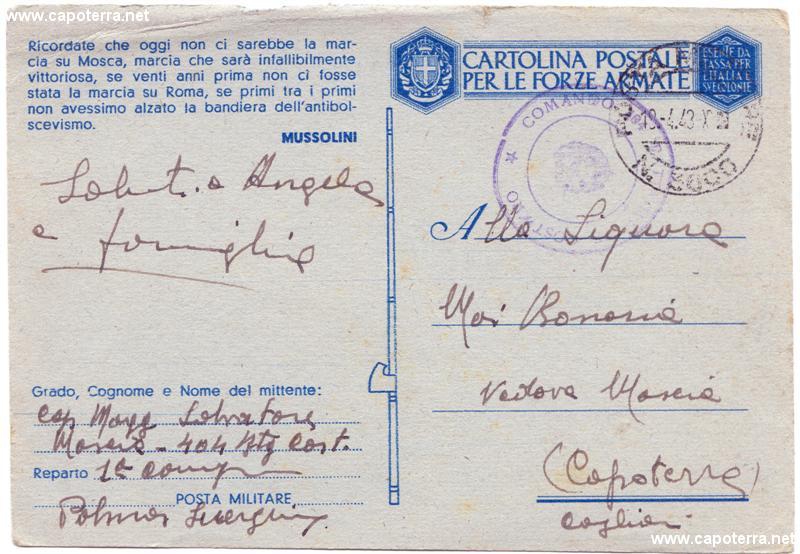 www.capoterra.net
Ricordate che oggi non ci sarebbe la mar-
cia su Mosca, marcia che sarà infallibilmente
vittoriosa, se venti anni prima non ci fosse
stata la marcia su Roma, se primi tra i primi
non avessimo alzato la bandiera dell'antibol-
scevismo.
MUSSOLINI
CARTOLINA POSTALE
PER LE FORZE ARMATE
ESENTE DA
TASSA PER
L'ITALIA E
SUE COLONIE
COMANDO
N. 3000
Saluti a Angela
e famiglia
Alla Signora
Moi Bonaria
Vedova Mascia
(Capoterra)
Cagliari
Grado, Cognome e Nome del mittente:
Cap Magg Salvatore
Mascia - 404 Btg Cost.
Reparto 1a Comp
POSTA MILITARE
Palmas
www.capoterra.net